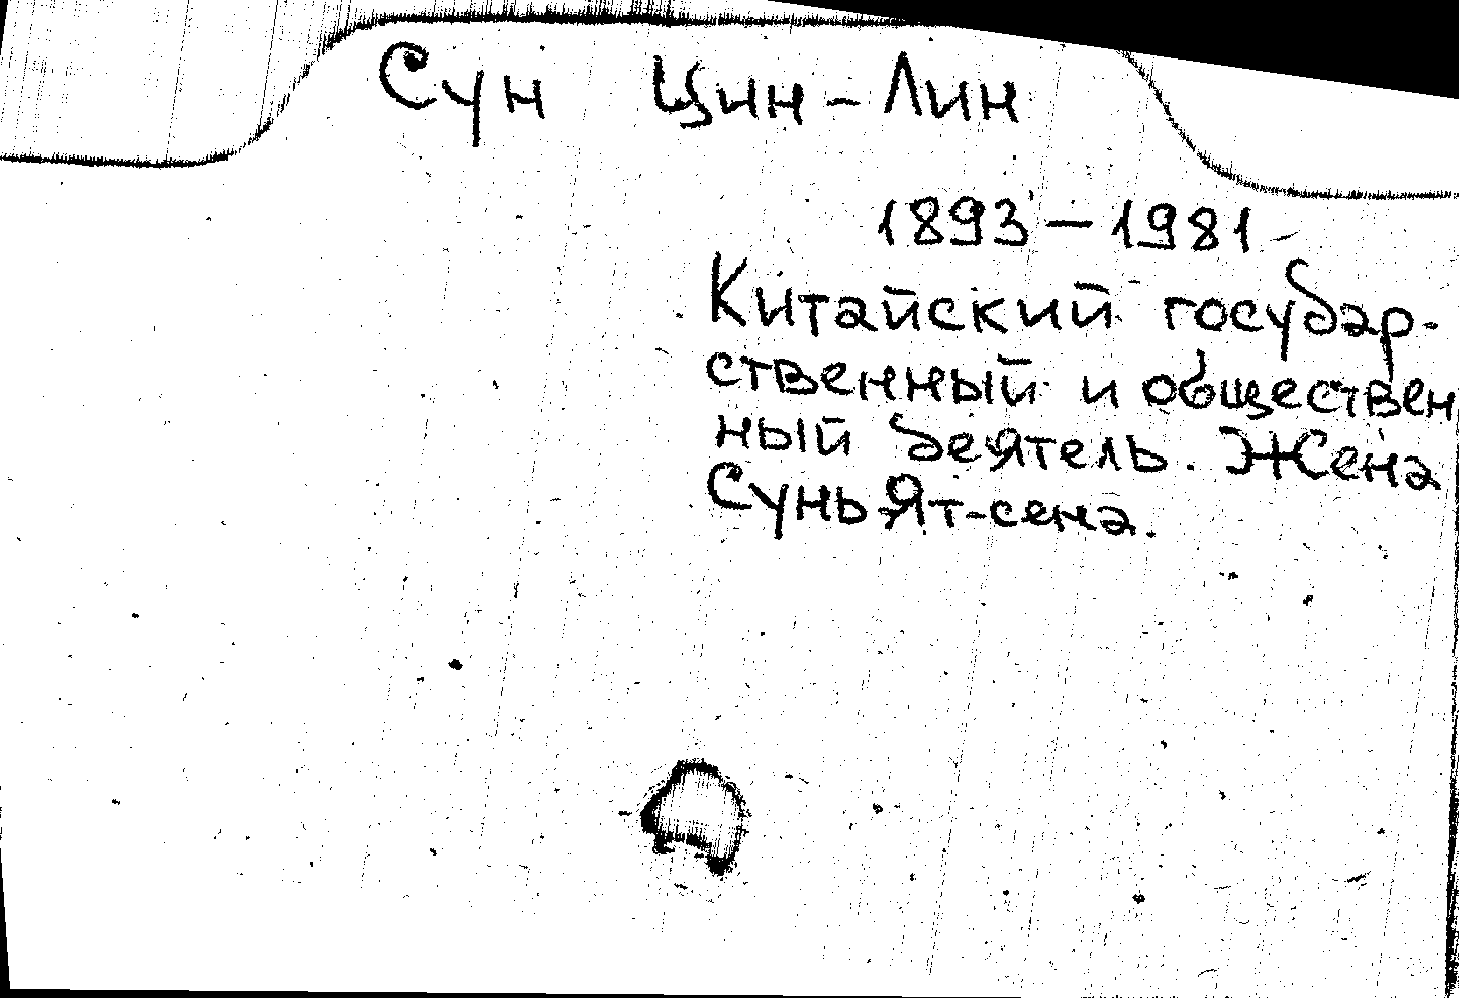 Сун Цин-Лин
1893-1981
Китайский государ-
ственный и обществен
ный деятель. Жена
Сунь Ят-сена.